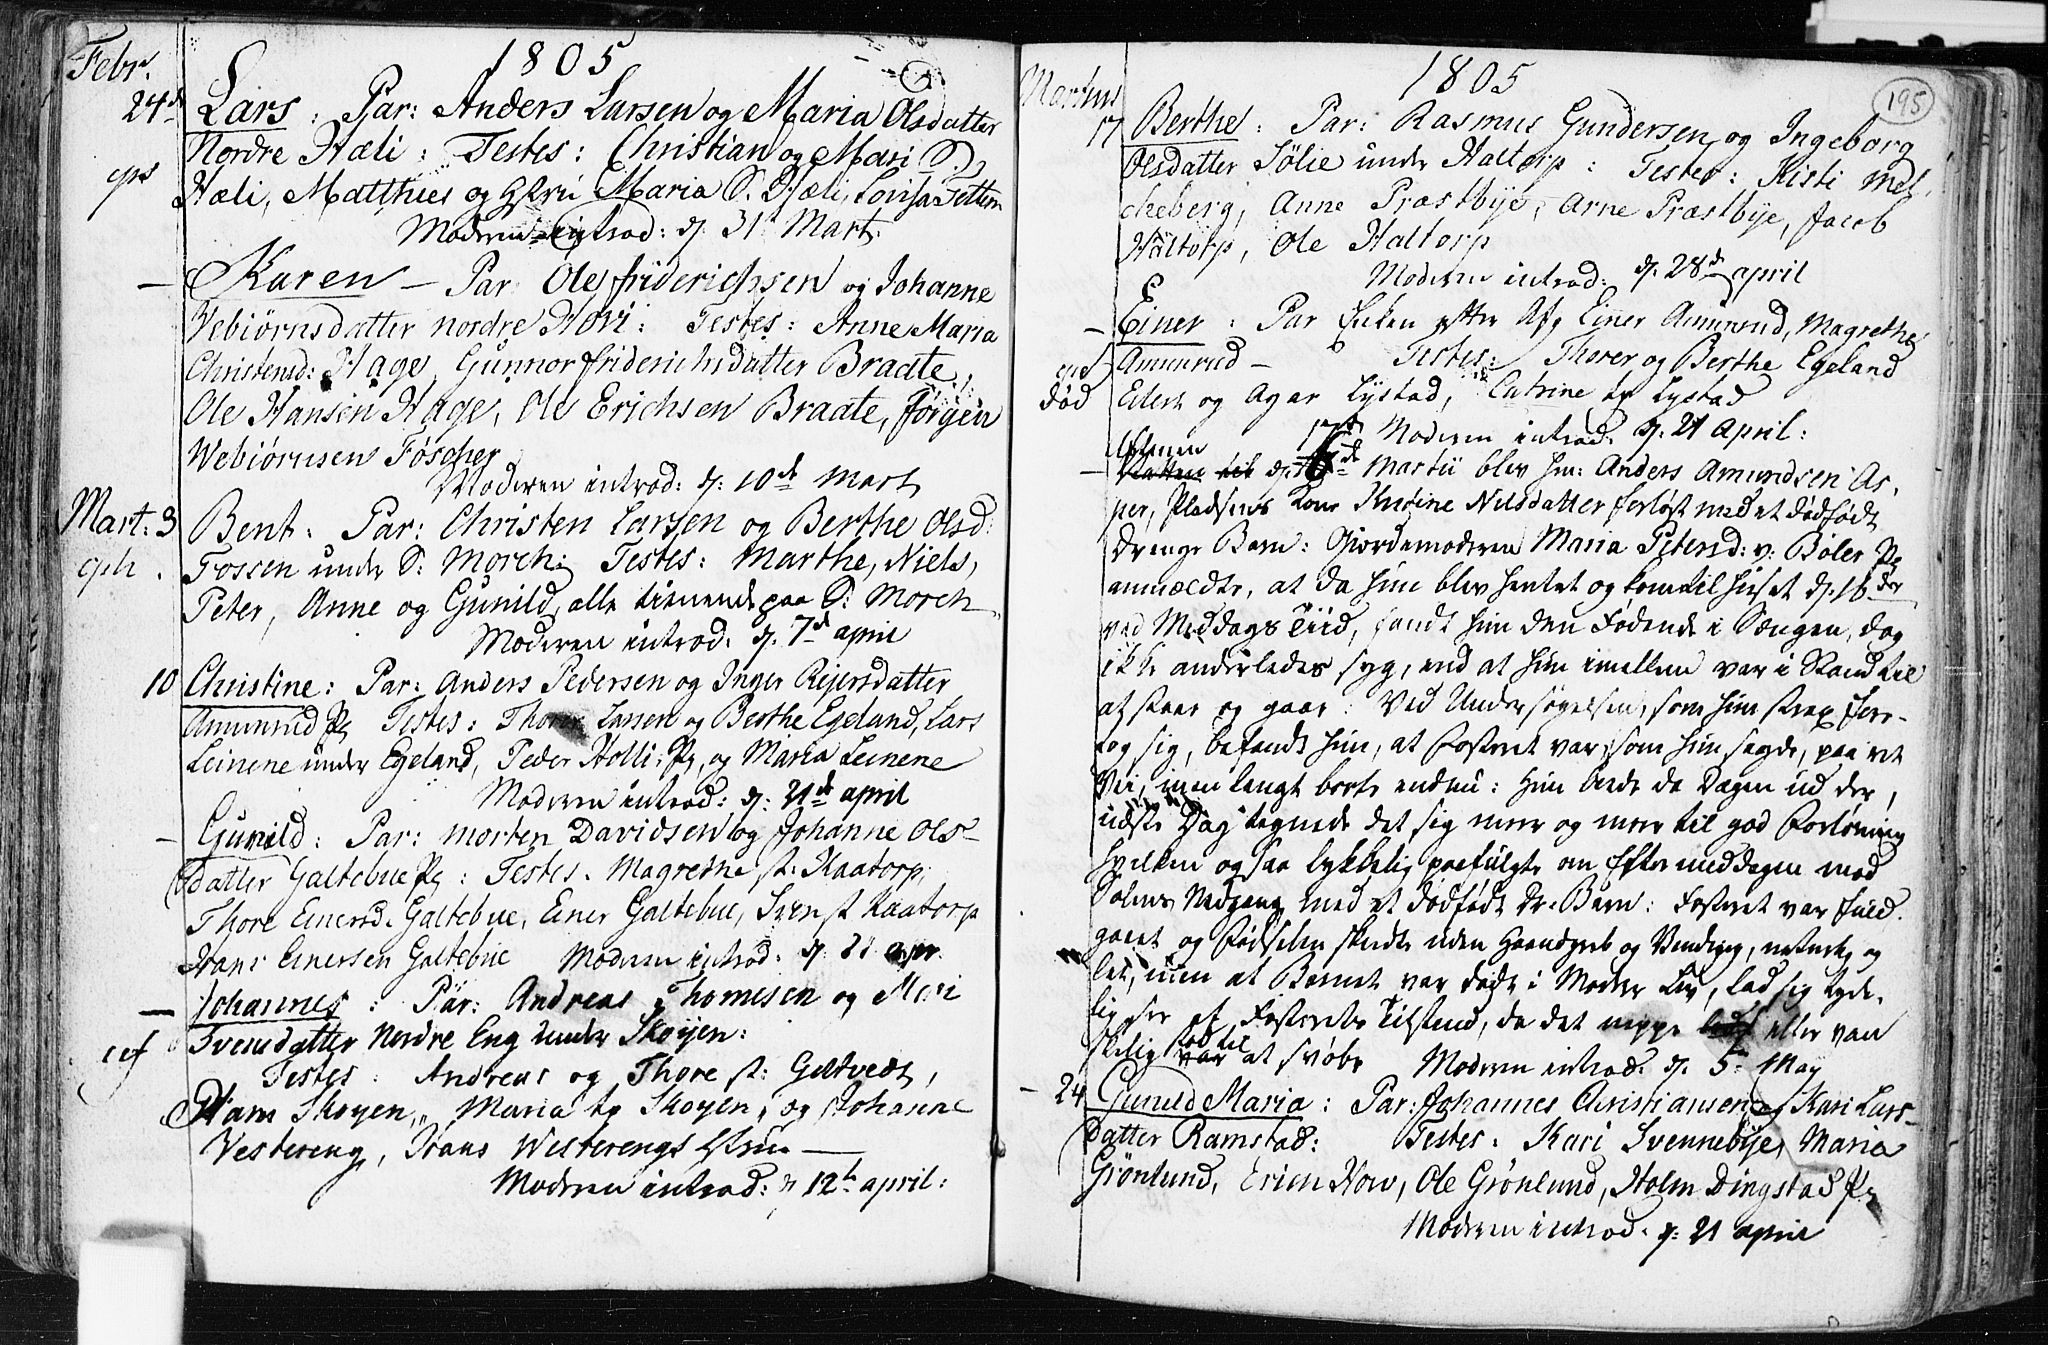 Febr.
1805
24de Lars: Par: Anders Larsen og Maria Olsdatter
Nordre Hæli: Testes: Christian og Mari S.
Hæli, Matthies og Maria S. Hæli, Lovisa
Moderen introd: d. 31t Mart.
— Karen — Par: Ole Friderichsen og Johanne
Vebiörnsdatter nordre Hovi: Testes: Anne Maria
Christensd: Hage, Gunnor Friderichsdatter Braate,
Ole Hansen Hage, Ole Erichsen Braate, Jörgen
Webiörnsen Föscher
Moderen introd: d: 10de Mart
Mart: 3 Bent. Par: Christen Larsen og Berthe Olsd:
Fossen under S: Morch: Testes: Marthe, Niels,
Peter, Anne og Gunild, alle tienende paa S: Morch
Moderen introd: d. 7de april
10 Christine: Par: Anders Pedersen og Inger Rejersdatter
Amunrud Testes: Thorer Larsen og Berthe Egeland, Lars
Leinene under Egeland, Peder Holli og Maria Leinene
Moderen introd: d: 21de april
— Gunild: Par: Morten Davidsen og Johanne Ols-
datter Galtebue: Testes. Magrethe st: Kaatorp,
Thore Einersd. Galtebue, Einer Galtebue, Sven st Kaatorp
Hans Einersen Galtebue Moderen introd. d. 21 apr.
— Johannes: Par: Andreas Thomesen og Mari
Svensdatter Nordre Eng under Skoyen:
Testes: Andreas og Thore st: Geltvedt,
Skoyen, Maria Skoyen, og Johanne
Vestereng, Hans Westerengs —
Moderen introd: d 12te april:
1805
195
Martius
17 Berthe: Par: Rasmus Gundersen og Ingeborg
Olsdatter Sölie under Haltorp: Testes: Kisti Mel-
cheberg, Anne Præstbye, Arne Præstbye, Jacob
Haltorp, Ole Haltorp
Moderen introd: d. 28de april
— Einer: Par Enken efter Einer Amunrud, Magrethe
Amunrud — Testes: Thorer og Berthe Egeland
död Eilert og Agar Lystad, Catrine Lystad
Moderen introd: d: 21 April:
— d: 16de Martii blev Anders Amundsen As-
per, Pladsens Kone Kirstine Nilsdatter forlöst med et dödfödt
Drenge Barn: Giordemoderen Maria Petersd: v: Böler
anmeldte, at da hun blev hentet og kom til Huset d. 16der
ved Meddags Tiid, fandt hun den Födende i Sængen, dog
ikke anderledes syg, end at hun imellem var i Stand til
at staae og gaae: Ved Undersögelsen, som hun strax fore-
tog sig, befandt hun, at Fosteret var, som hun sagde, paa ret
Vei, men langt borte endnu: hun biede da Dagen ud der,
næste Dag tegnede det sig meer og meer til god Forlösning
hvilken og saa lykkelig paafulgte om Eftermiddagen med
Solens Nedgang med et dödfödt Dr: Barn: Fosteret var fuld-
gaaet og Födselen skedte uden Haandgreb og Vending, naturlig og
let, men at Barnet var dödt i Moders Liv, lod sig tyde-
lig see af Fosterets Tilstand, da det neppe eller van
skelig lod til at svöbe Moderen introd. d. 5te May
— 24 Gunild Maria: Par: Johannes Christiansen og Kari Lars-
datter Ramstad: Testes: Kari Svennebye, Maria
Grönlund, How, Ole Grönlund, Holm Dingstad
Moderen introd. d: 21 april